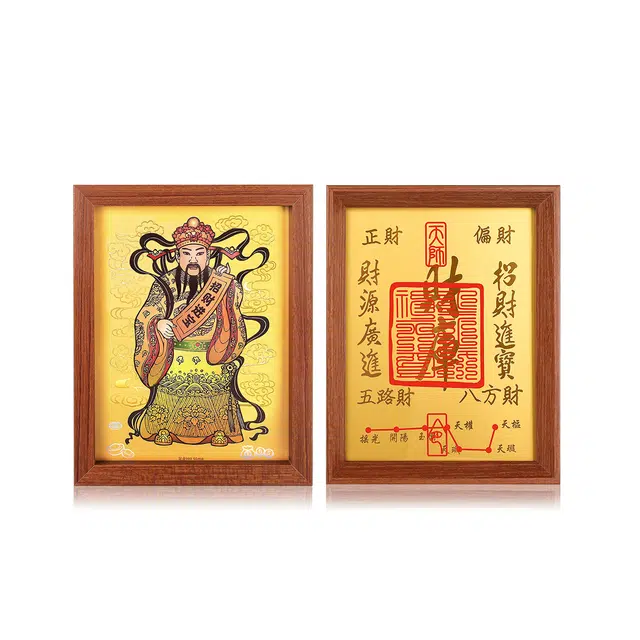 招財進寶
正財
天師
偏財
財源廣進
財庫
招財進寶
五路財
八方財
搖光
開陽
玉
天權
天樞
天璇